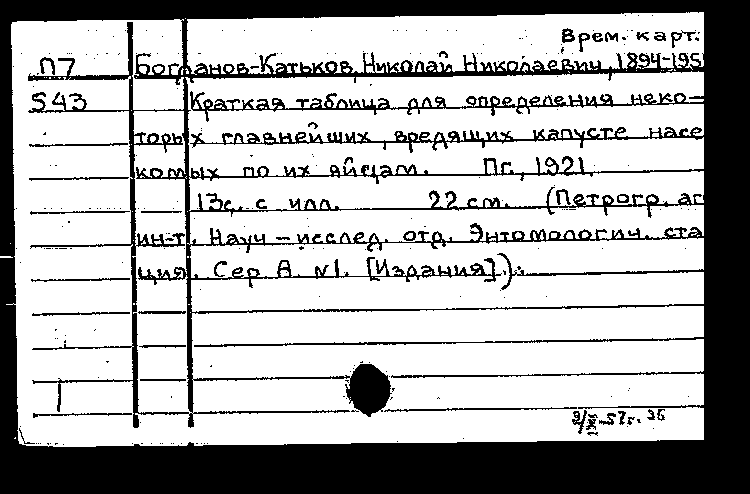 Врем. карт.
П7 Богданов-Катьков, Николай Николаевич, 1894-195
543 Краткая таблица для определения неко-
торых главнейших, вредящих капусте насе
комых по их яйцам. Пг., 1921.
13с. с илл. 22 см. (Петрогр. аг
ин-т. Науч-исслед. отд. Энтомологич. ста
ция. Сер. А. №1. [Издания]).
57г.